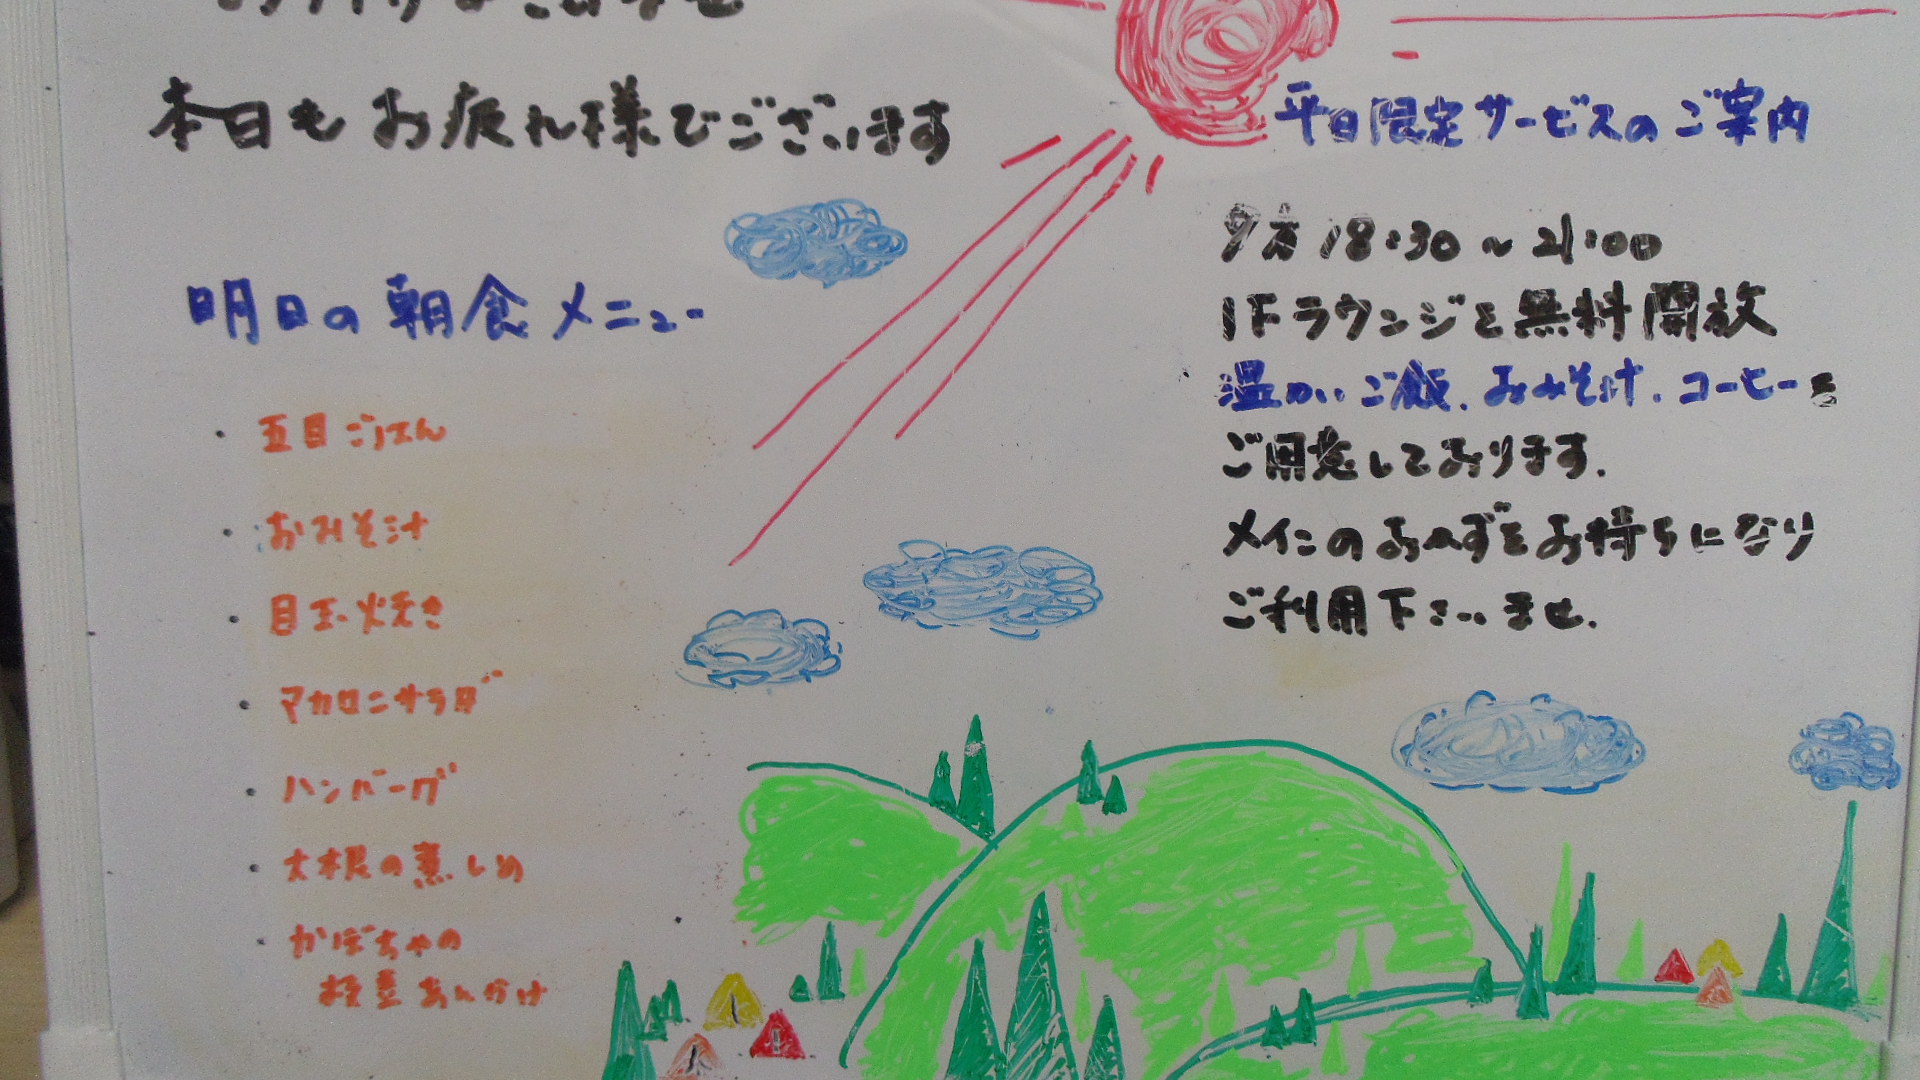 本日もお疲れ様でございます
明日の朝食メニュー
・五目ごはん
・おみそ汁
・目玉焼き
・マカロニサラダ
・ハンバーグ
・大根の煮しめ
・かぼちゃの
枝豆あんかけ
平日限定サービスのご案内
夕方 18:30～21:00
1Fラウンジを無料開放
温かいご飯、おみそ汁、コーヒーを
ご用意しております。
メインのおかずをお持ちになり
ご利用下さいませ。